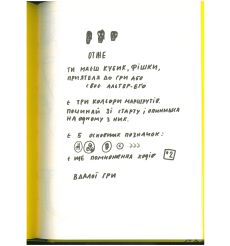 ОТЖЕ
ТИ МАЄШ КУБИК, ФІШКИ,
ПРИЯТЕЛЯ ДО ГРИ АБО
СВОЄ АЛЬТЕР-ЕГО
Є ТРИ КОЛЬОРИ МАРШРУТІВ.
ПОЧИНАЙ ЗІ СТАРТУ І ОПИНИШСЯ
НА ОДНОМУ З НИХ.
Є 5 ОСНОВНИХ ПОЗНАЧОК:
Є ЩЕ ПОМНОЖЕННЯ ХОДІВ *2
ВДАЛОЇ ГРИ